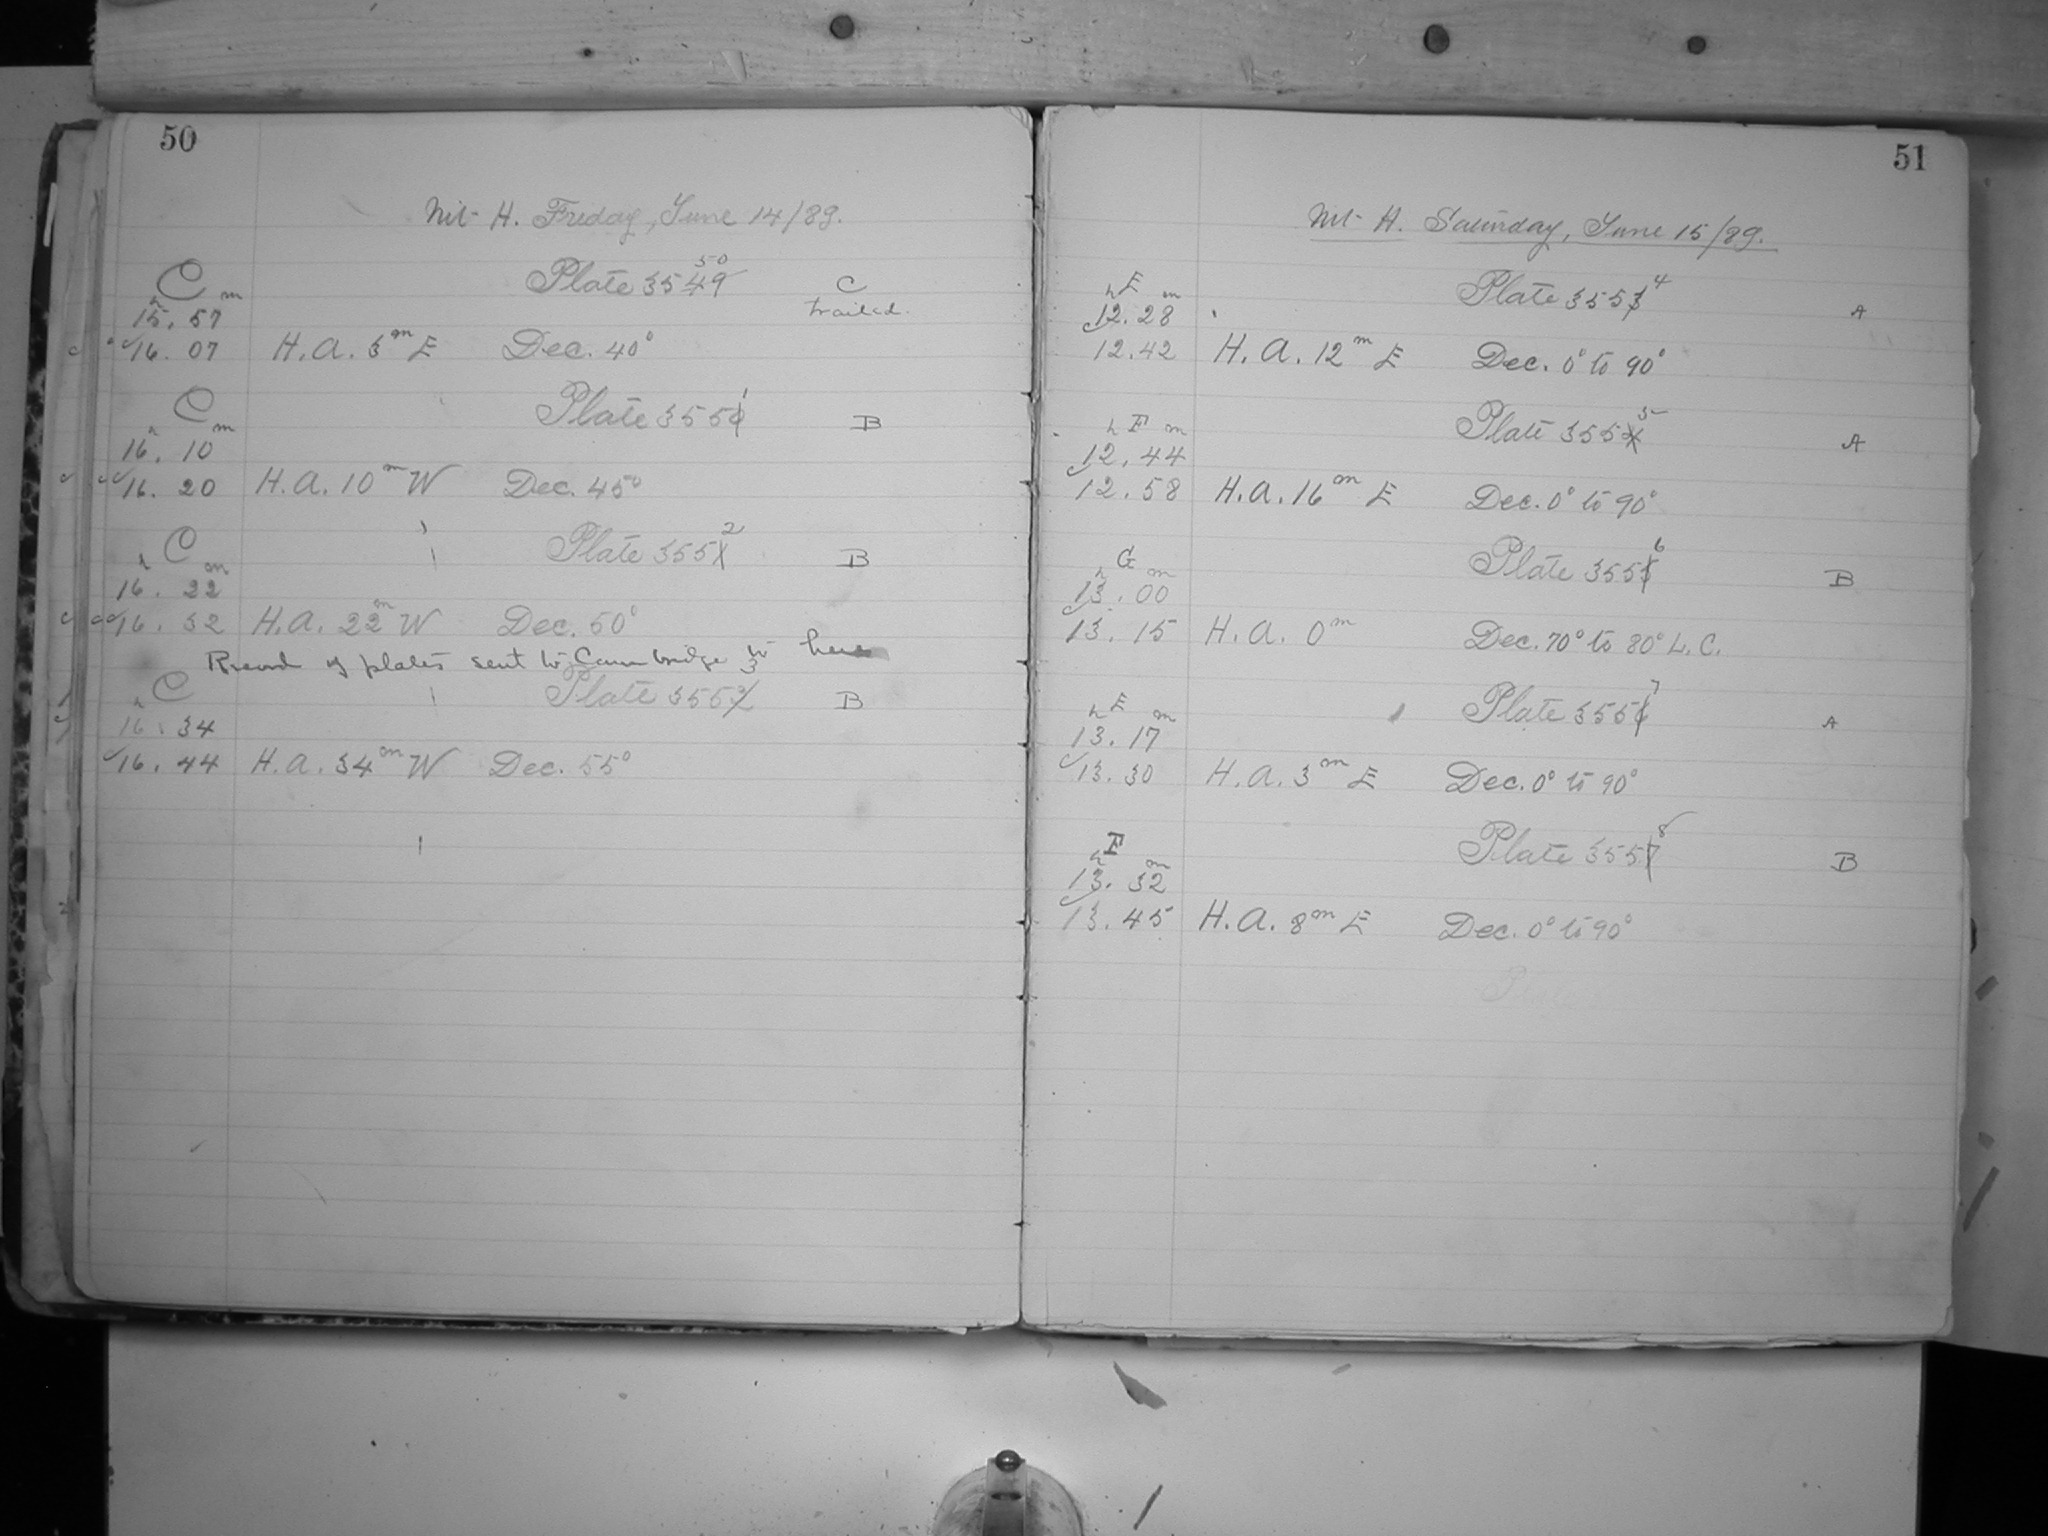 50
Mt. H. Friday, June 14/89.
C
50
Plate 3549
C
h m
15. 57
trailed.
16. 07 H.A. 3m E Dec. 40°
C
1
Plate 3550
B
h m
16. 10
16. 20 H.A. 10m W Dec. 45°
C
2
Plate 3551
B
h m
16. 22
16. 32 H.A. 22m W Dec. 50°
Record of plates sent to Cambridge to here
C
3
Plate 3552
B
h
16. 34
16. 44 H.A. 34m W Dec. 55°
51
Mt. H. Saturday, June 15/89.
E
4
Plate 3553
A
h m
12. 28
12. 42 H.A. 12m E Dec. 0° to 90°
F
5
Plate 3554
A
h m
12. 44
12. 58 H.A. 16m E Dec. 0° to 90°
G
6
Plate 3555
B
h m
13. 00
13. 15 H.A. 0m Dec. 70° to 80° L.C.
E
7
Plate 3556
A
h m
13. 17
13. 30 H.A. 3m E Dec. 0° to 90°
F
8
Plate 3557
B
h m
13. 32
13. 45 H.A. 8m E Dec. 0° to 90°